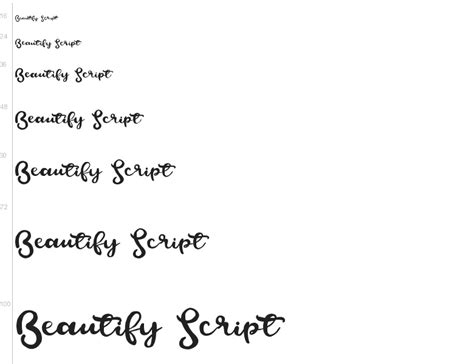 16 Beautify Script
24 Beautify Script
36 Beautify Script
48 Beautify Script
60 Beautify Script
72 Beautify Script
100 Beautify Script